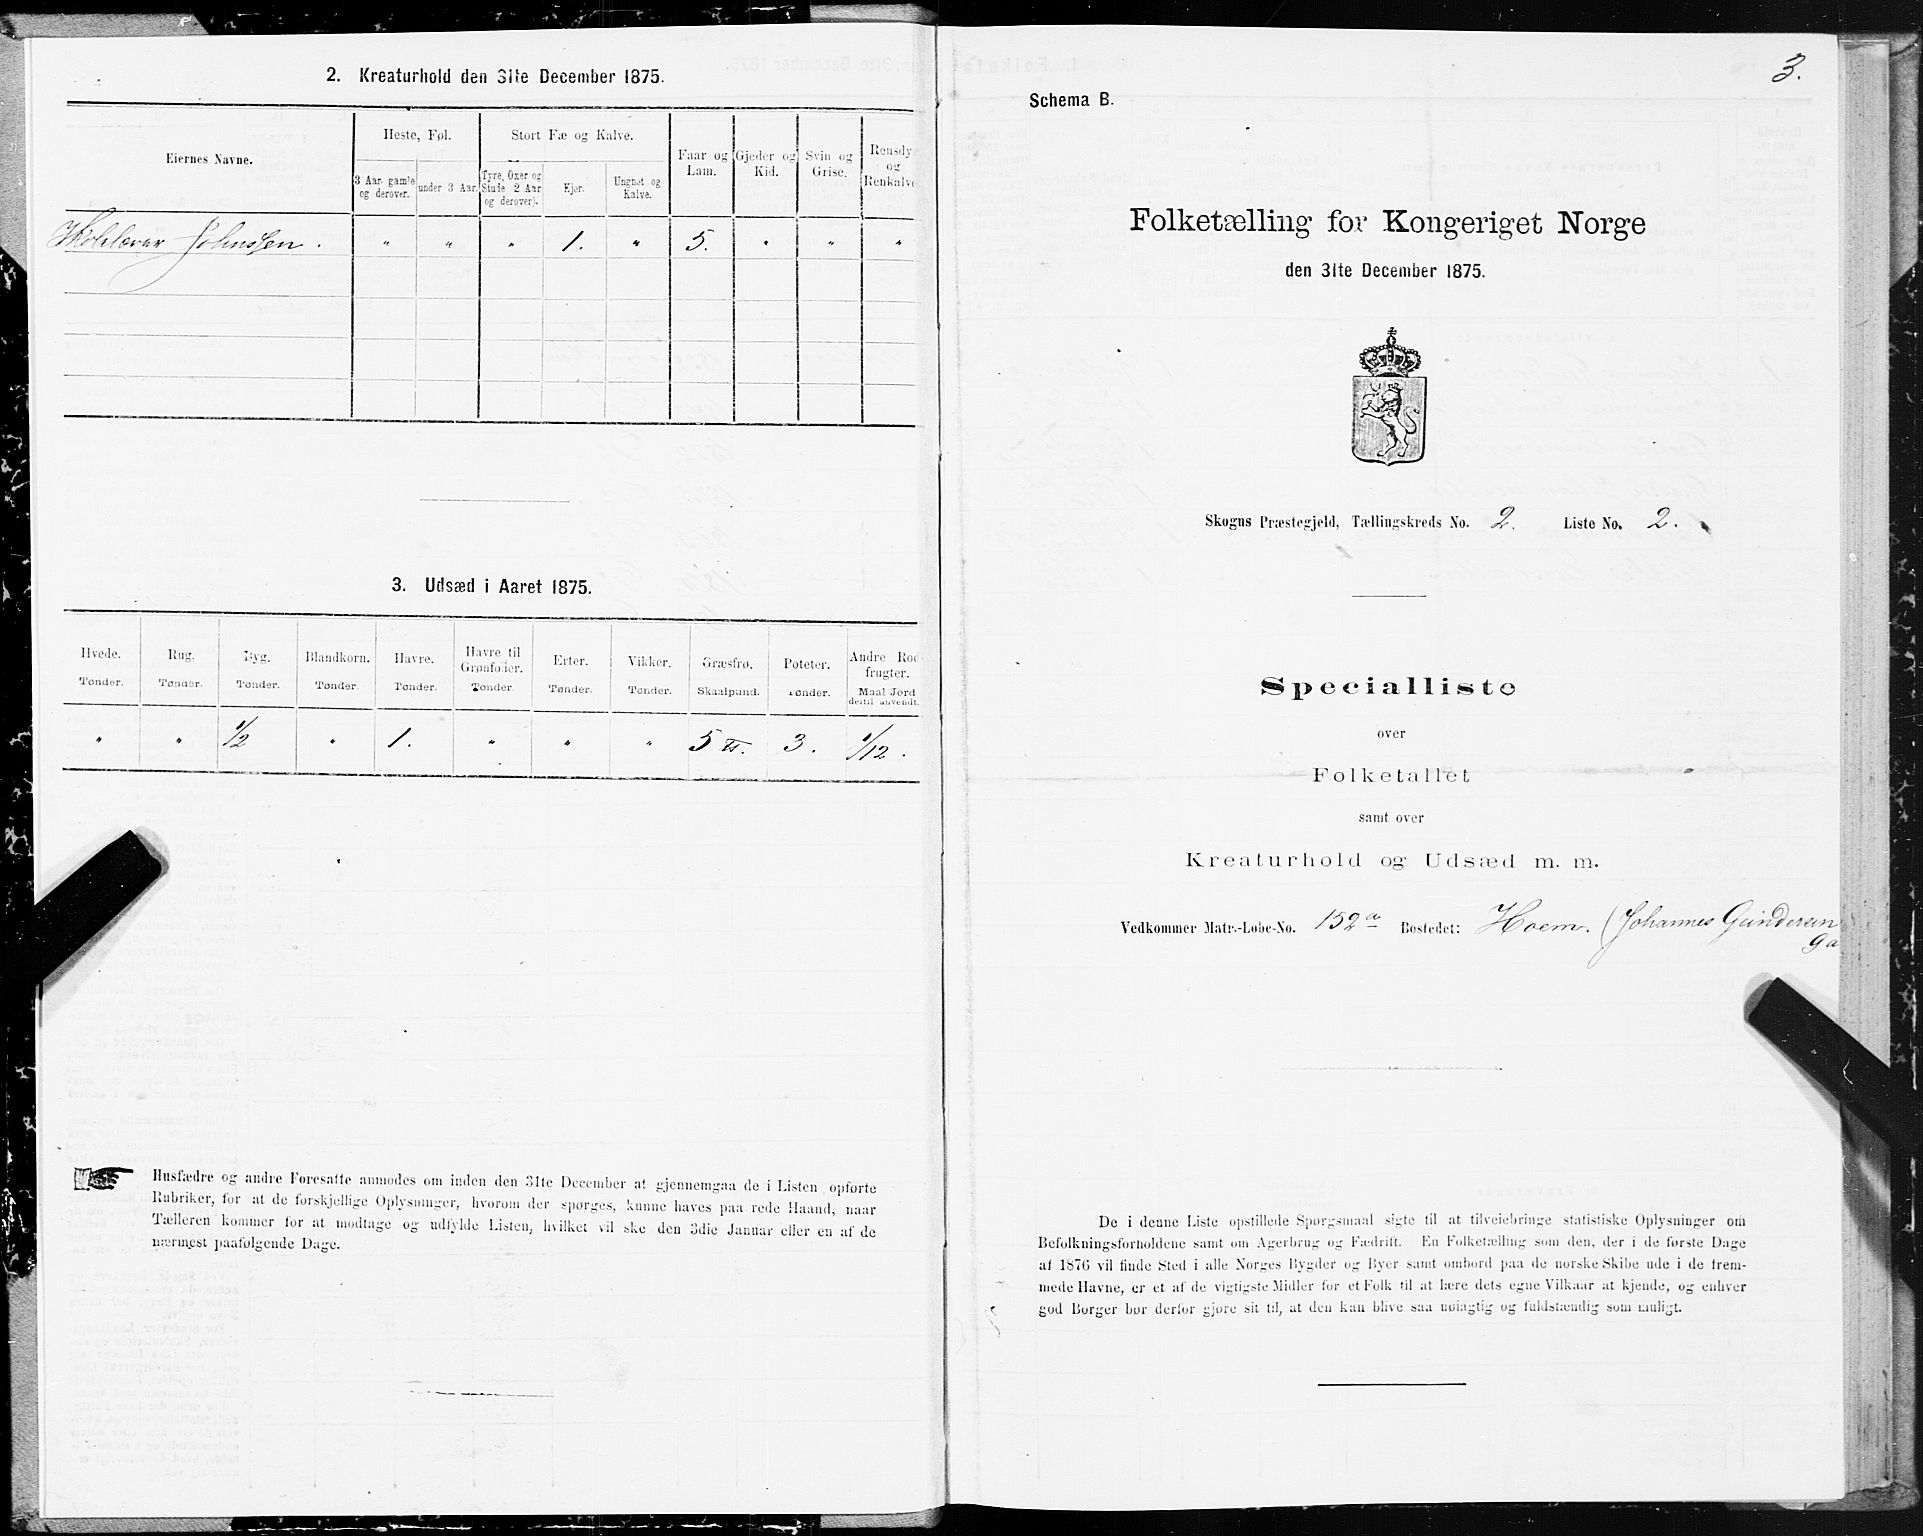 2. Kreaturhold den 31te December 1875.
Eiernes Navne.
Heste, Føl.
Stort Fæ og Kalve.
3 Aar gamle og derover.
under 3 Aar.
Tyre, Oxer og Stude (2 Aar og derover).
Kjør.
Ungnøt og Kalve.
Faar og Lam.
Gjeder og Kid.
Svin og Grise.
Rensdy og Renkalve
Johnssen. " " " 1. " 5. " " "
3. Udsæd i Aaret 1875.
Hvede. Rug. Byg. Blandkorn. Havre. Havre til Grønfoder. Erter. Vikker. Græsfrø. Poteter. Andre Rodfrugter.
Tønder. Tønder. Tønder. Tønder. Tønder. Tønder. Tønder. Tønder. Skaalpund. Tønder. Maal Jord dertil anvendt.
" " 1/2 " 1. " " " 5 ℔. 3. 1/12.
Husfædre og andre Foresatte anmodes om inden den 31te December at gjennemgaa de i Listen opførte
Rubriker, for at de forskjellige Oplysninger, hvorom der spørges, kunne haves paa rede Haand, naar
Tælleren kommer for at modtage og udfylde Listen, hvilket vil ske den 3die Januar eller en af de
nærmest paafølgende Dage.
3.
Schema B.
Folketælling for Kongeriget Norge
den 31te December 1875.
Skogns Præstegjeld, Tællingskreds No. 2. Liste No. 2.
Specialliste
over
Folketallet
samt over
Kreaturhold og Udsæd m. m.
Vedkommer Matr.-Løbe-No. 152a Bostedet: Hoem. (Johannes Gundersen
Ga
De i denne Liste opstillede Spørgsmaal sigte til at tilveiebringe statistiske Oplysninger om
Befolkningsforholdene samt om Agerbrug og Fædrift. En Folketælling som den, der i de første Dage
af 1876 vil finde Sted i alle Norges Bygder og Byer samt ombord paa de norske Skibe ude i de frem-
mede Havne, er et af de vigtigste Midler for et Folk til at lære dets egne Vilkaar at kjende, og enhver
god Borger bør derfor gjøre sit til, at den kan blive saa nøiagtig og fuldstændig som muligt.